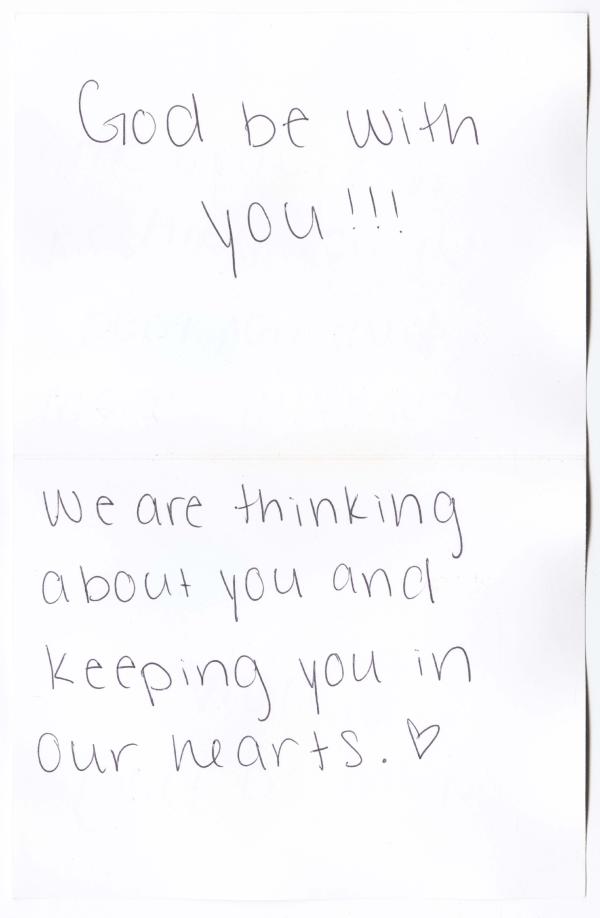 God be with
you!!!
We are thinking
about you and
keeping you in
our hearts. ♡